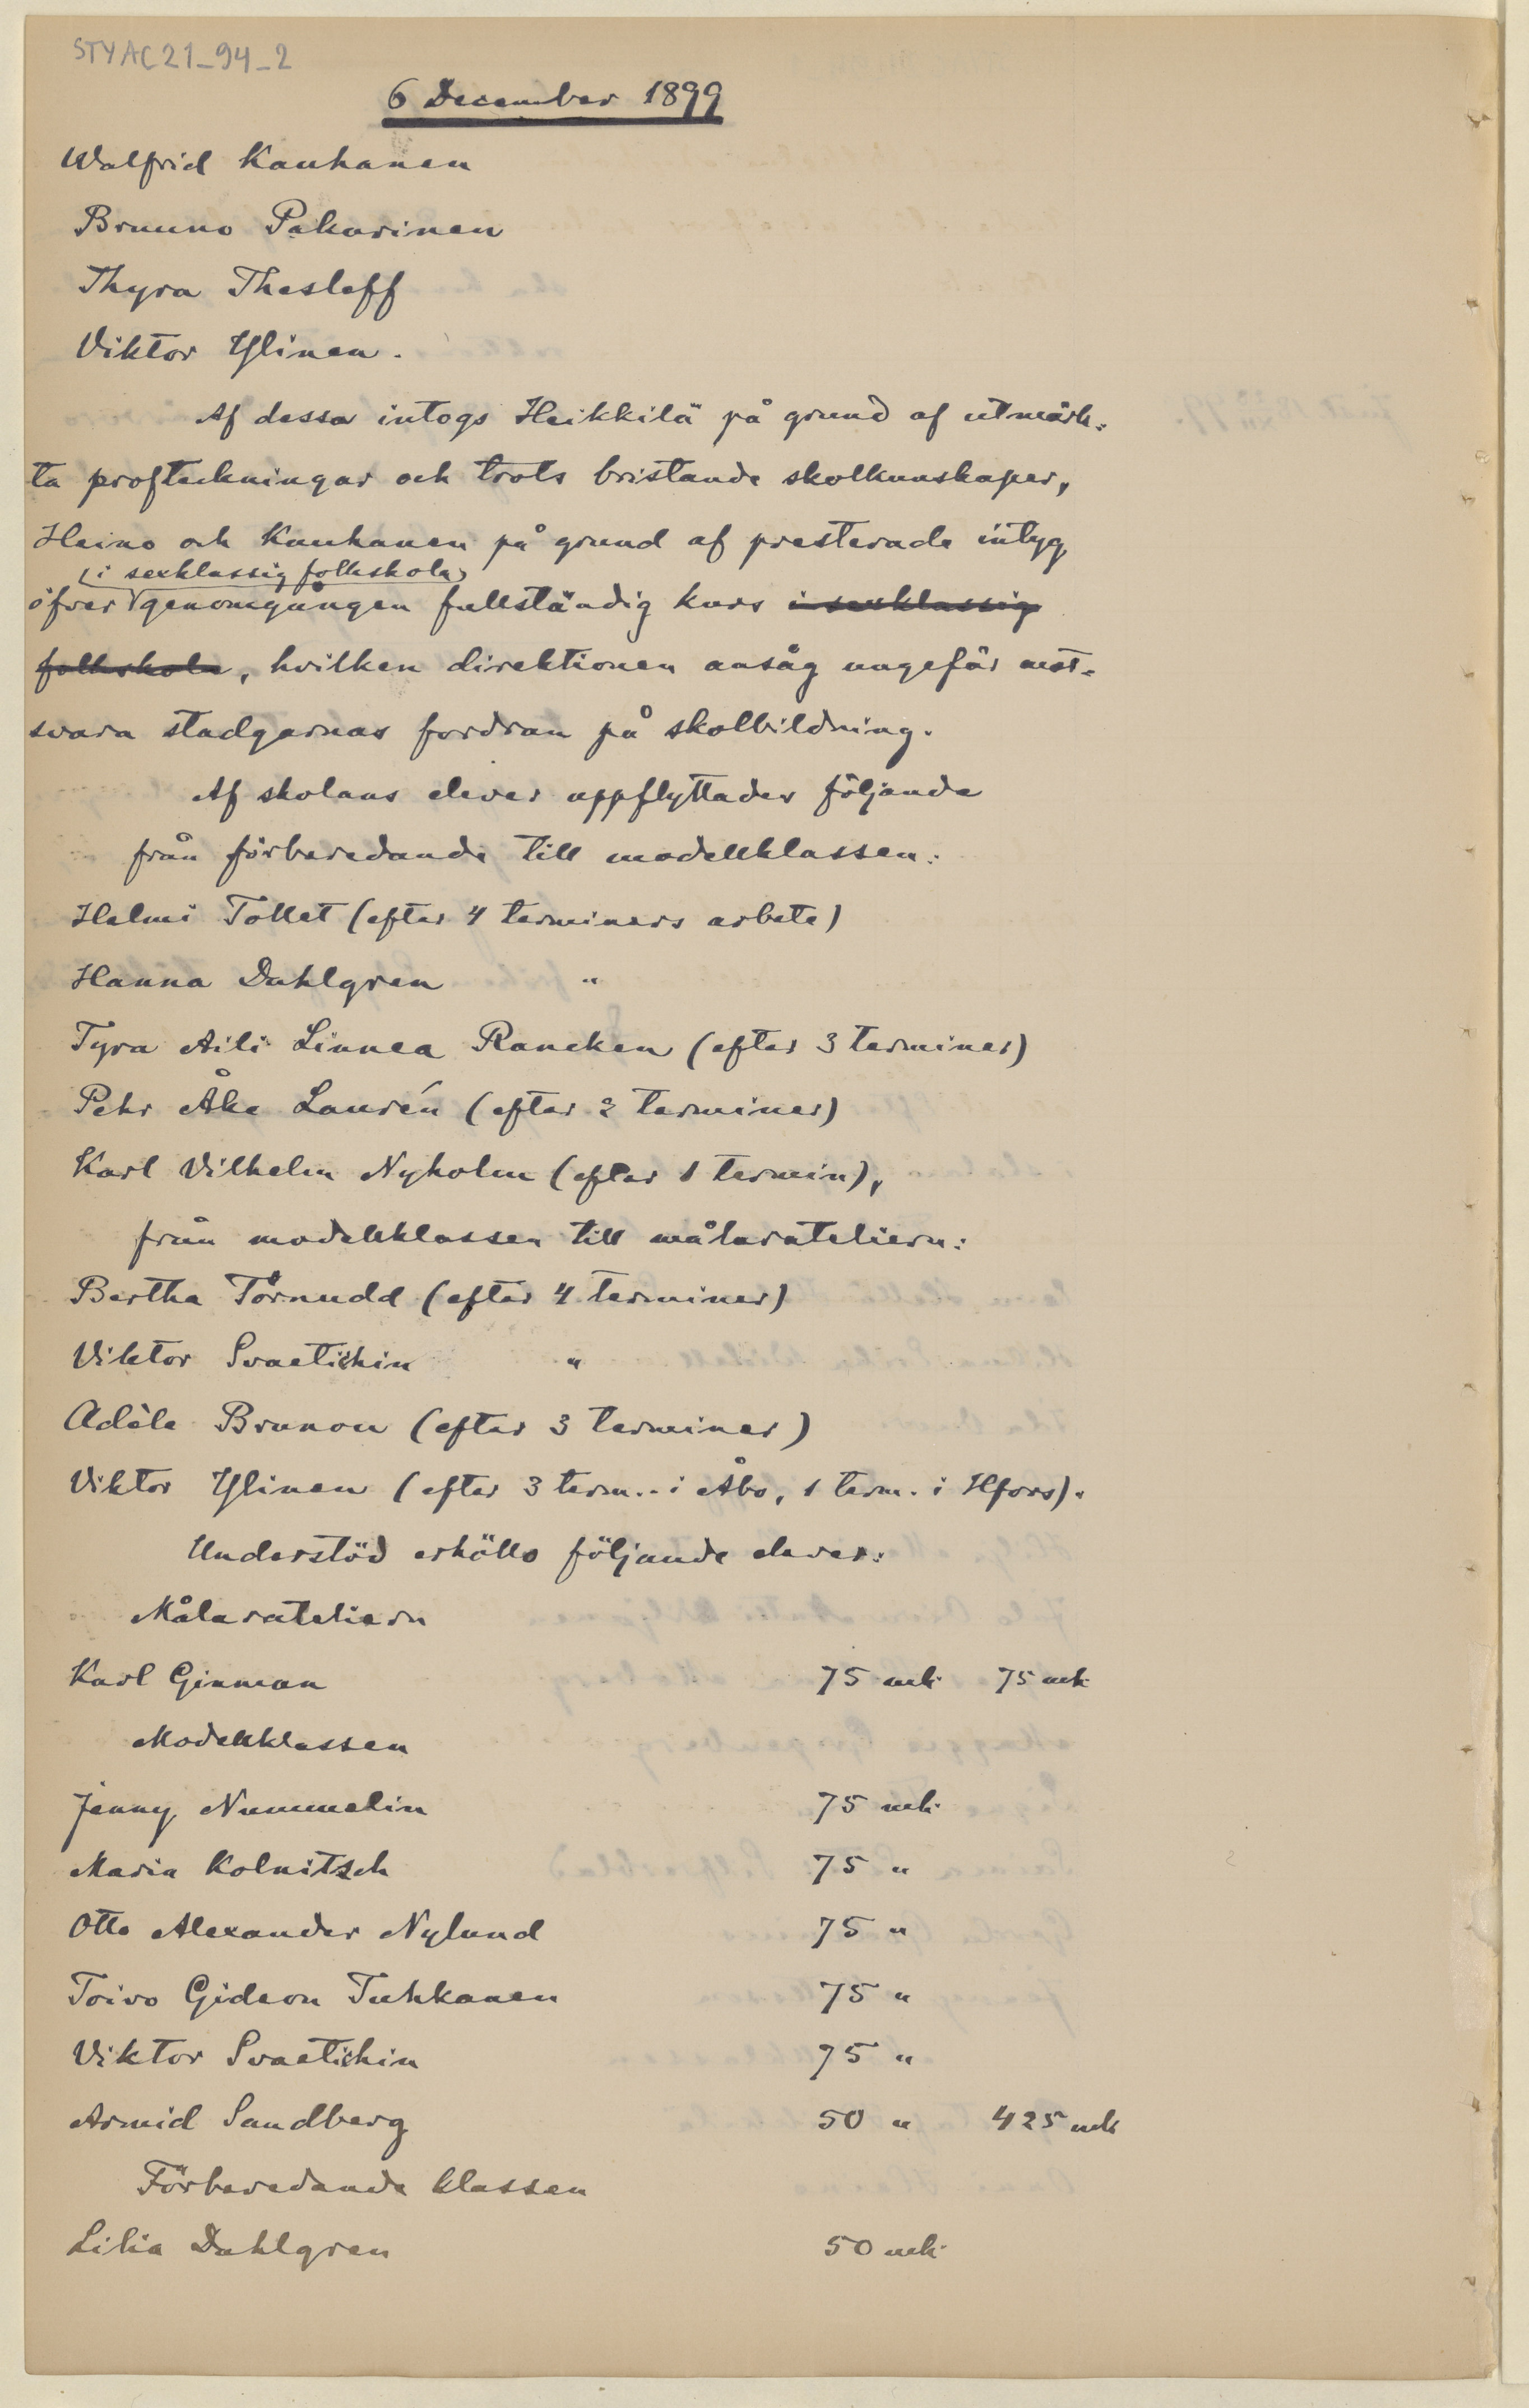 STYAC21_94_2
6 December 1899
Walfrid Kauhanen
Brunno Pakarinen
Thyra Thesleff
Viktor Ylinen.
Af dessa intogs Heikkilä på grund af utmärk-
ta profteckningar och trots bristande skolkunskaper,
Heino och Kauhanen på grund af presterade intyg
(i sexklassig folkskola)
öfver genomgången fullständig kurs i sexklassig
folkskola, hvilken direktionen ansåg ungefär mot-
svara stadgarnas fordran på skolbildning.
Af skolans elever uppflyttades följande
från förberedande till modellklassen:
Helmi Tollet (efter 4 terminers arbete)
Hanna Dahlgren "
Tyra Aili Linnea Rancken (efter 3 terminer)
Pehr Åke Laurén (efter 2 terminer)
Karl Vilhelm Nyholm (efter 1 termin),
från modellklassen till målarateliern:
Bertha Törnudd (efter 4 terminer)
Viktor Svaetichin "
Adèle Brunou (efter 3 terminer)
Viktor Ylinen (efter 3 term. i Åbo, 1 term. i Hfors).
Understöd erhöllo följande elever:
Målarateliern
Karl Ginman 75 mk 75 mk
Modellklassen
Jenny Nummelin 75 mk
Maria Kolnitsch 75 "
Otto Alexander Nylund 75 "
Toivo Gideon Tuhkanen 75 "
Viktor Svaetichin 75 "
Armid Sandberg 50 " 425 mk
Förberedande klassen
Lilia Dahlgren 50 mk